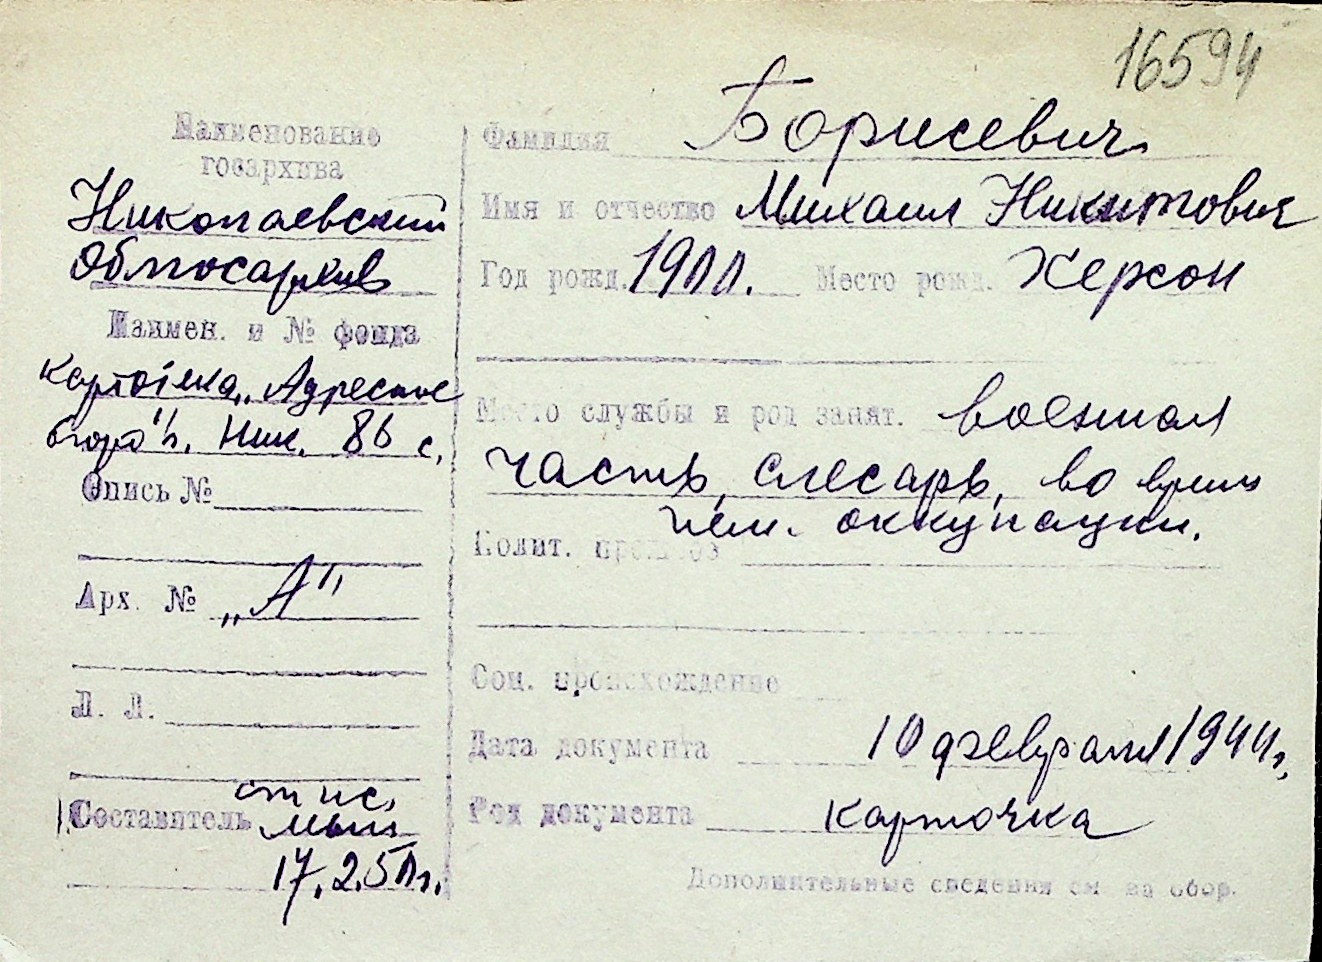 16594
Наименование
госархива
Николаевский
Облгосархив
Наимен. и № фонда
картотека „Адресное
бюро" г. Ник. 86 с.
Опись №
Арх. № „А"
Л. Л.
Составитель ст. н. с.
17.2.50 г.
Фамилия Борисевич
Имя и отчество Михаил Никитович
Год рожд. 1900. Место рожд. Херсон
Место службы и род занят. военная
часть, слесарь, во время
нем. оккупации.
Полит. прошлое
Соц. происхождение
Дата документа 10 февраля 1944 г.
Род документа карточка
Дополнительные сведения см на обор.